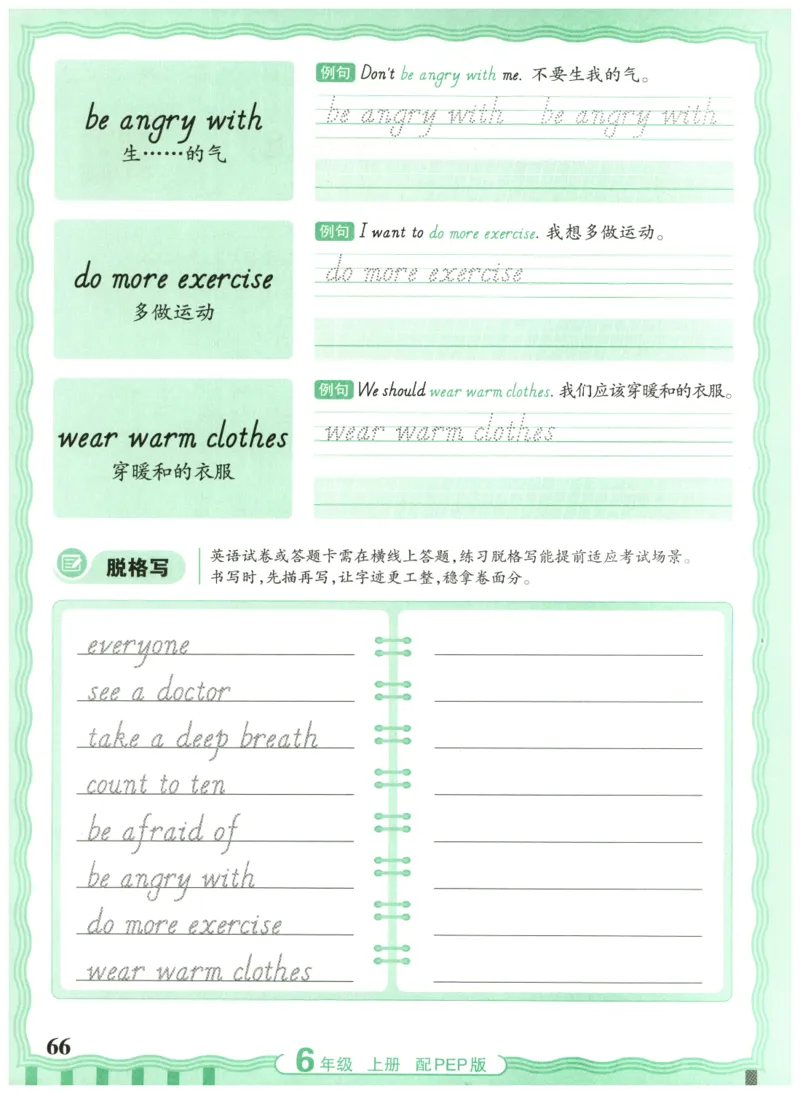 be angry with
生……的气
例句 Don't be angry with me. 不要生我的气。
be angry with be angry with
do more exercise
多做运动
例句 I want to do more exercise. 我想多做运动。
do more exercise
wear warm clothes
穿暖和的衣服
例句 We should wear warm clothes. 我们应该穿暖和的衣服。
wear warm clothes
脱格写
英语试卷或答题卡需在横线上答题,练习脱格写能提前适应考试场景。
书写时,先描再写,让字迹更工整,稳拿卷面分。
everyone
see a doctor
take a deep breath
count to ten
be afraid of
be angry with
do more exercise
wear warm clothes
66
6年级 上册 配PEP版